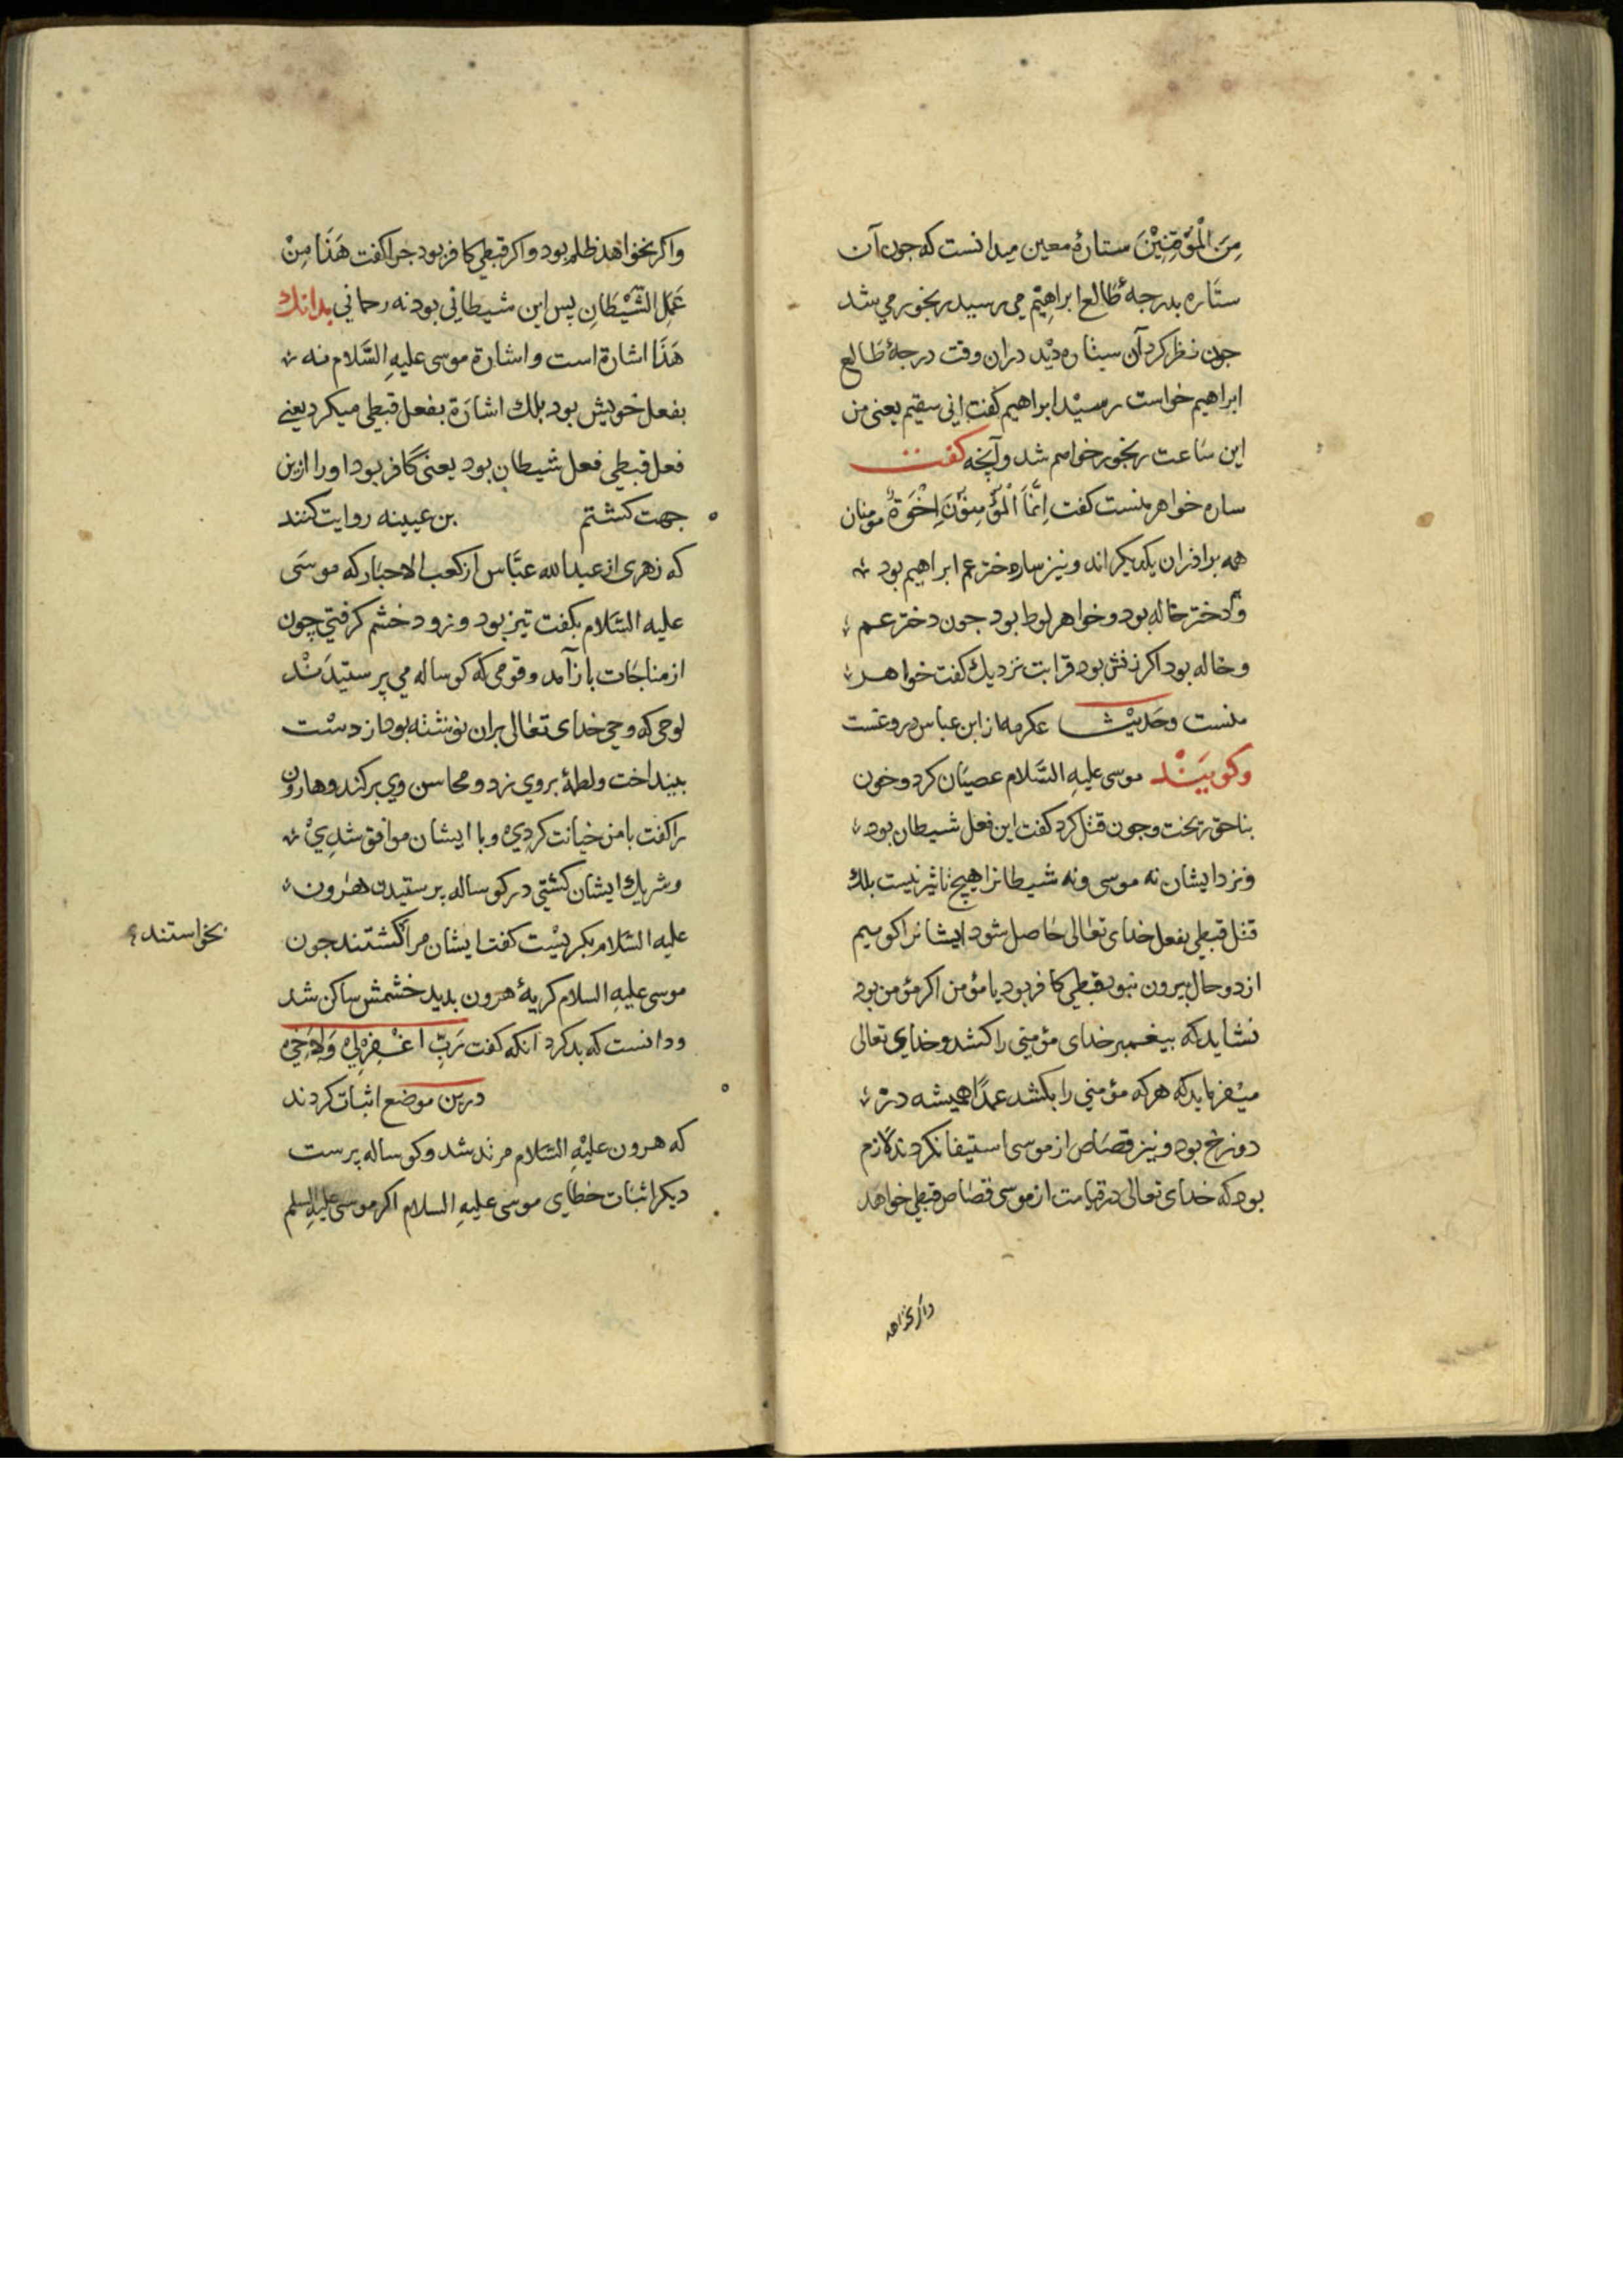 مِنَ الْمُؤقِنِيْنَ ستارهٔ معین میدانست که جون آن
ستاره بدرجهٔ طالع ابراهیم می رسید رنجور می شد
جون نظر کرد آن ستاره دید دران وقت درجهٔ طالع
ابراهیم خواست رسید ابراهیم کفت انی سقیم یعنی من
این ساعت رنجور خواهم شد و آنچه کفت
ساره خواهر منست کفت اِنَّمَا الْمُؤْمِنُوْنَ اِخْوَةٌ مومنان
همه براذران یکدیکراند و نیز ساره دختر عم ابراهیم بود
و دختر خاله بود و خواهر لوط بود جون دختر عم
و خاله بود اکر زنش بود قرابت نزدیك کفت خواهر
منست و حدیث عکرمه از ابن عباس دروغست
وکویَنْد موسی علیهِ السَّلام عصیَان کرد و خون
بناحق ریخت و جون قتل کرد کفت این فعل شیطان بود
و نزد ایشان نه موسی و نه شیطانرا هیچ تاثیر نیست بلك
قتل قبطی بفعل خدای تعالی حاصل شود ایشانرا کوییم
از دو حال بیرون نبود قبطی کافر بود یا مؤمن اکر مؤمن بود
نشاید که بیغمبر خدای مؤمنی را کشد و خدای تعالی
میفرماید که هر که مؤمنی را بکشد عمدًا همیشه در
دوزخ بود و نیز قصَاص از موسی استیفا نکردند لازم
بود که خدای تعالی در قیامت از موسی قصاص قبطی خواهد
واکر نخواهد
واکر نخواهذ ظلم بود و اکر قبطی کافر بود جرا کفت هَذَا مِنْ
عَمَلِ الشَّيْطَانِ پس این شیطانی بود نه رحمانی بدانك
هَذَا اشارة است و اشارة موسی علیهِ السَّلام نه
بفعل خویش بود بلك اشارَة بفعل قبطی میکرد یعنے
فعل قبطی فعل شیطان بود یعنی کافر بود اورا ازین
جهت کشتم بن عیینه روایت کنند
که زهری از عبدالله عبَّاس از کعب الاحبار که موسَی
علیه السَّلام بکفت تیز بود و زود خشم کرفتی چون
از مناجَات باز آمد و قومی که کوساله می پرستیدَنْد
لوحی که وحی خدای تعالی بران نوشته بود از دسْت
بینداخت و لطمهٔ بروی زد و محاسن وی برکند و هارون
را کفت با من خیانت کردی و با ایشان موافق شدِیْ
و شریك ایشان کشتی در کوساله پرستیدن هرون
علیه السَّلام بکریْست کفت ایشان مرا کشتند جون
نخواستند
موسی علیهِ السلام کریهٔ هرون بدید خشمش ساکن شد
و دانست که بد کرد آنکه کفت رَبِّ اغْفِرْ لِی وَلِاَخِی
درین موضع اثبات کردند
که هرون علیْهِ السَّلام مرتد شد و کوساله پرست
دیکر اثبات خطای موسی علیهِ السلام اکر موسی علیهِ السلم